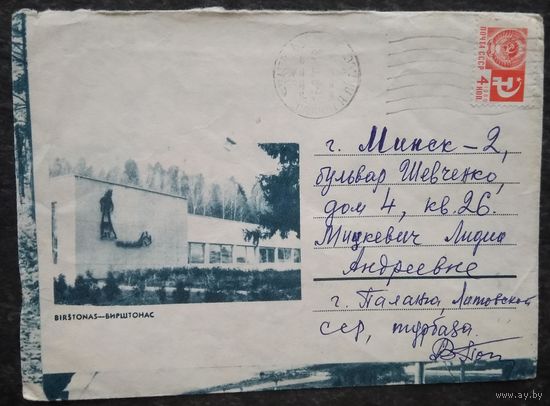 ПОЧТА СССР
4 КОП.
г. Минск-2,
бульвар Шевченко,
дом 4, кв. 26.
Мицкевич Лидии
Андреевне
г. Паланга, Литовской
ССР, турбаза.
BIRŠTONAS—БИРШТОНАС
www.ay.by